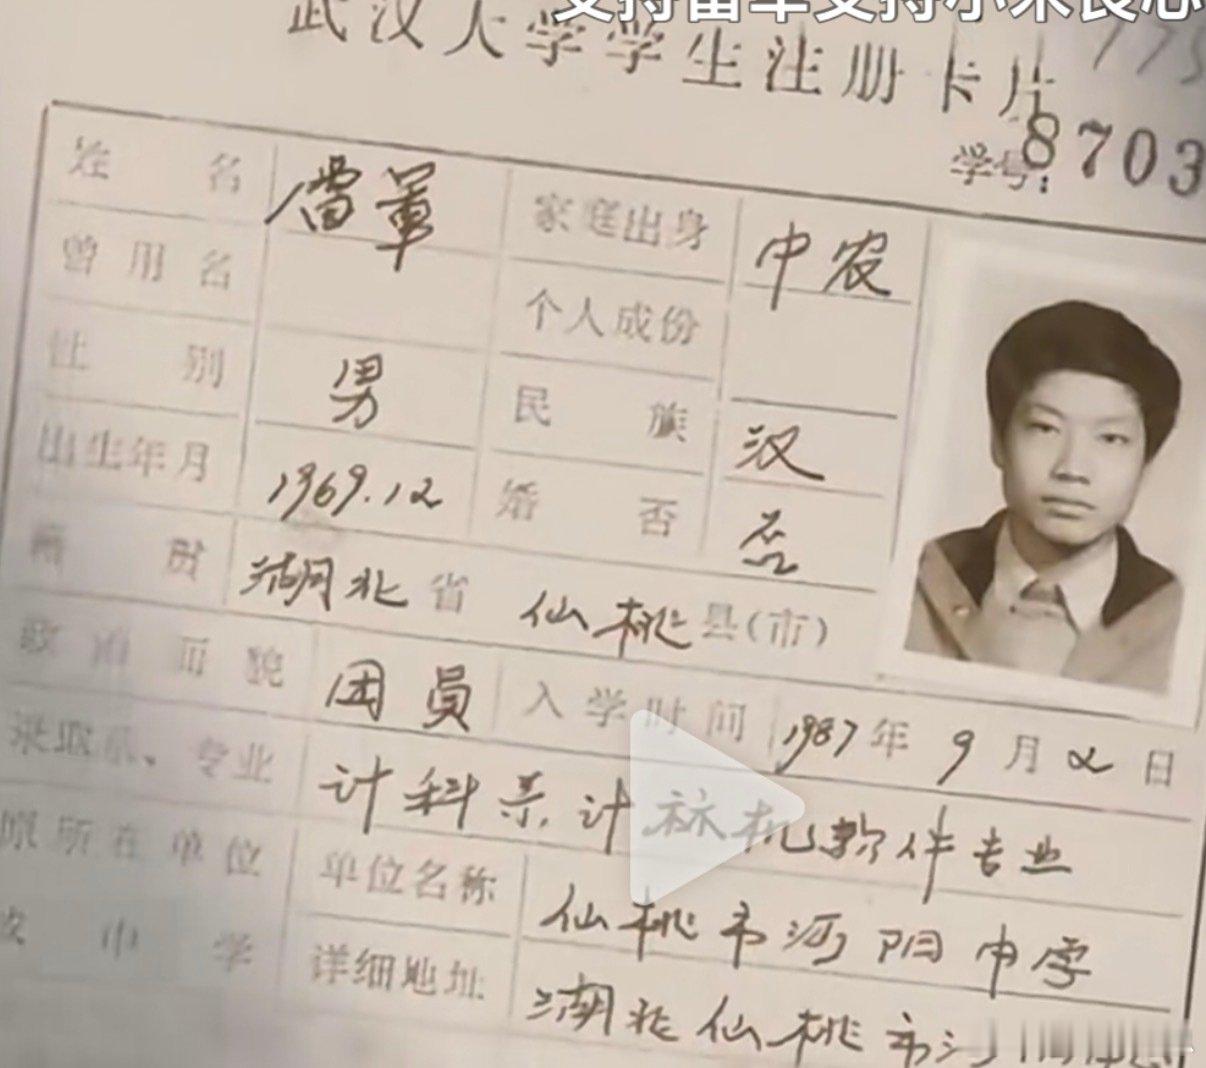 支持雷军支持小米良心
武汉大学学生注册卡片
学号: 8703
姓名 雷軍 家庭出身 中农
曾用名 个人成份
性别 男 民族 汉
出生年月 1969.12 婚否 否
籍贯 湖北省 仙桃县(市)
政治面貌 团员 入学时间 1987年9月2日
录取系、专业 计科系计祘机软件专业
原所在单位 单位名称 仙桃市沔阳中学
或中学 详细地址 湖北仙桃市沔阳